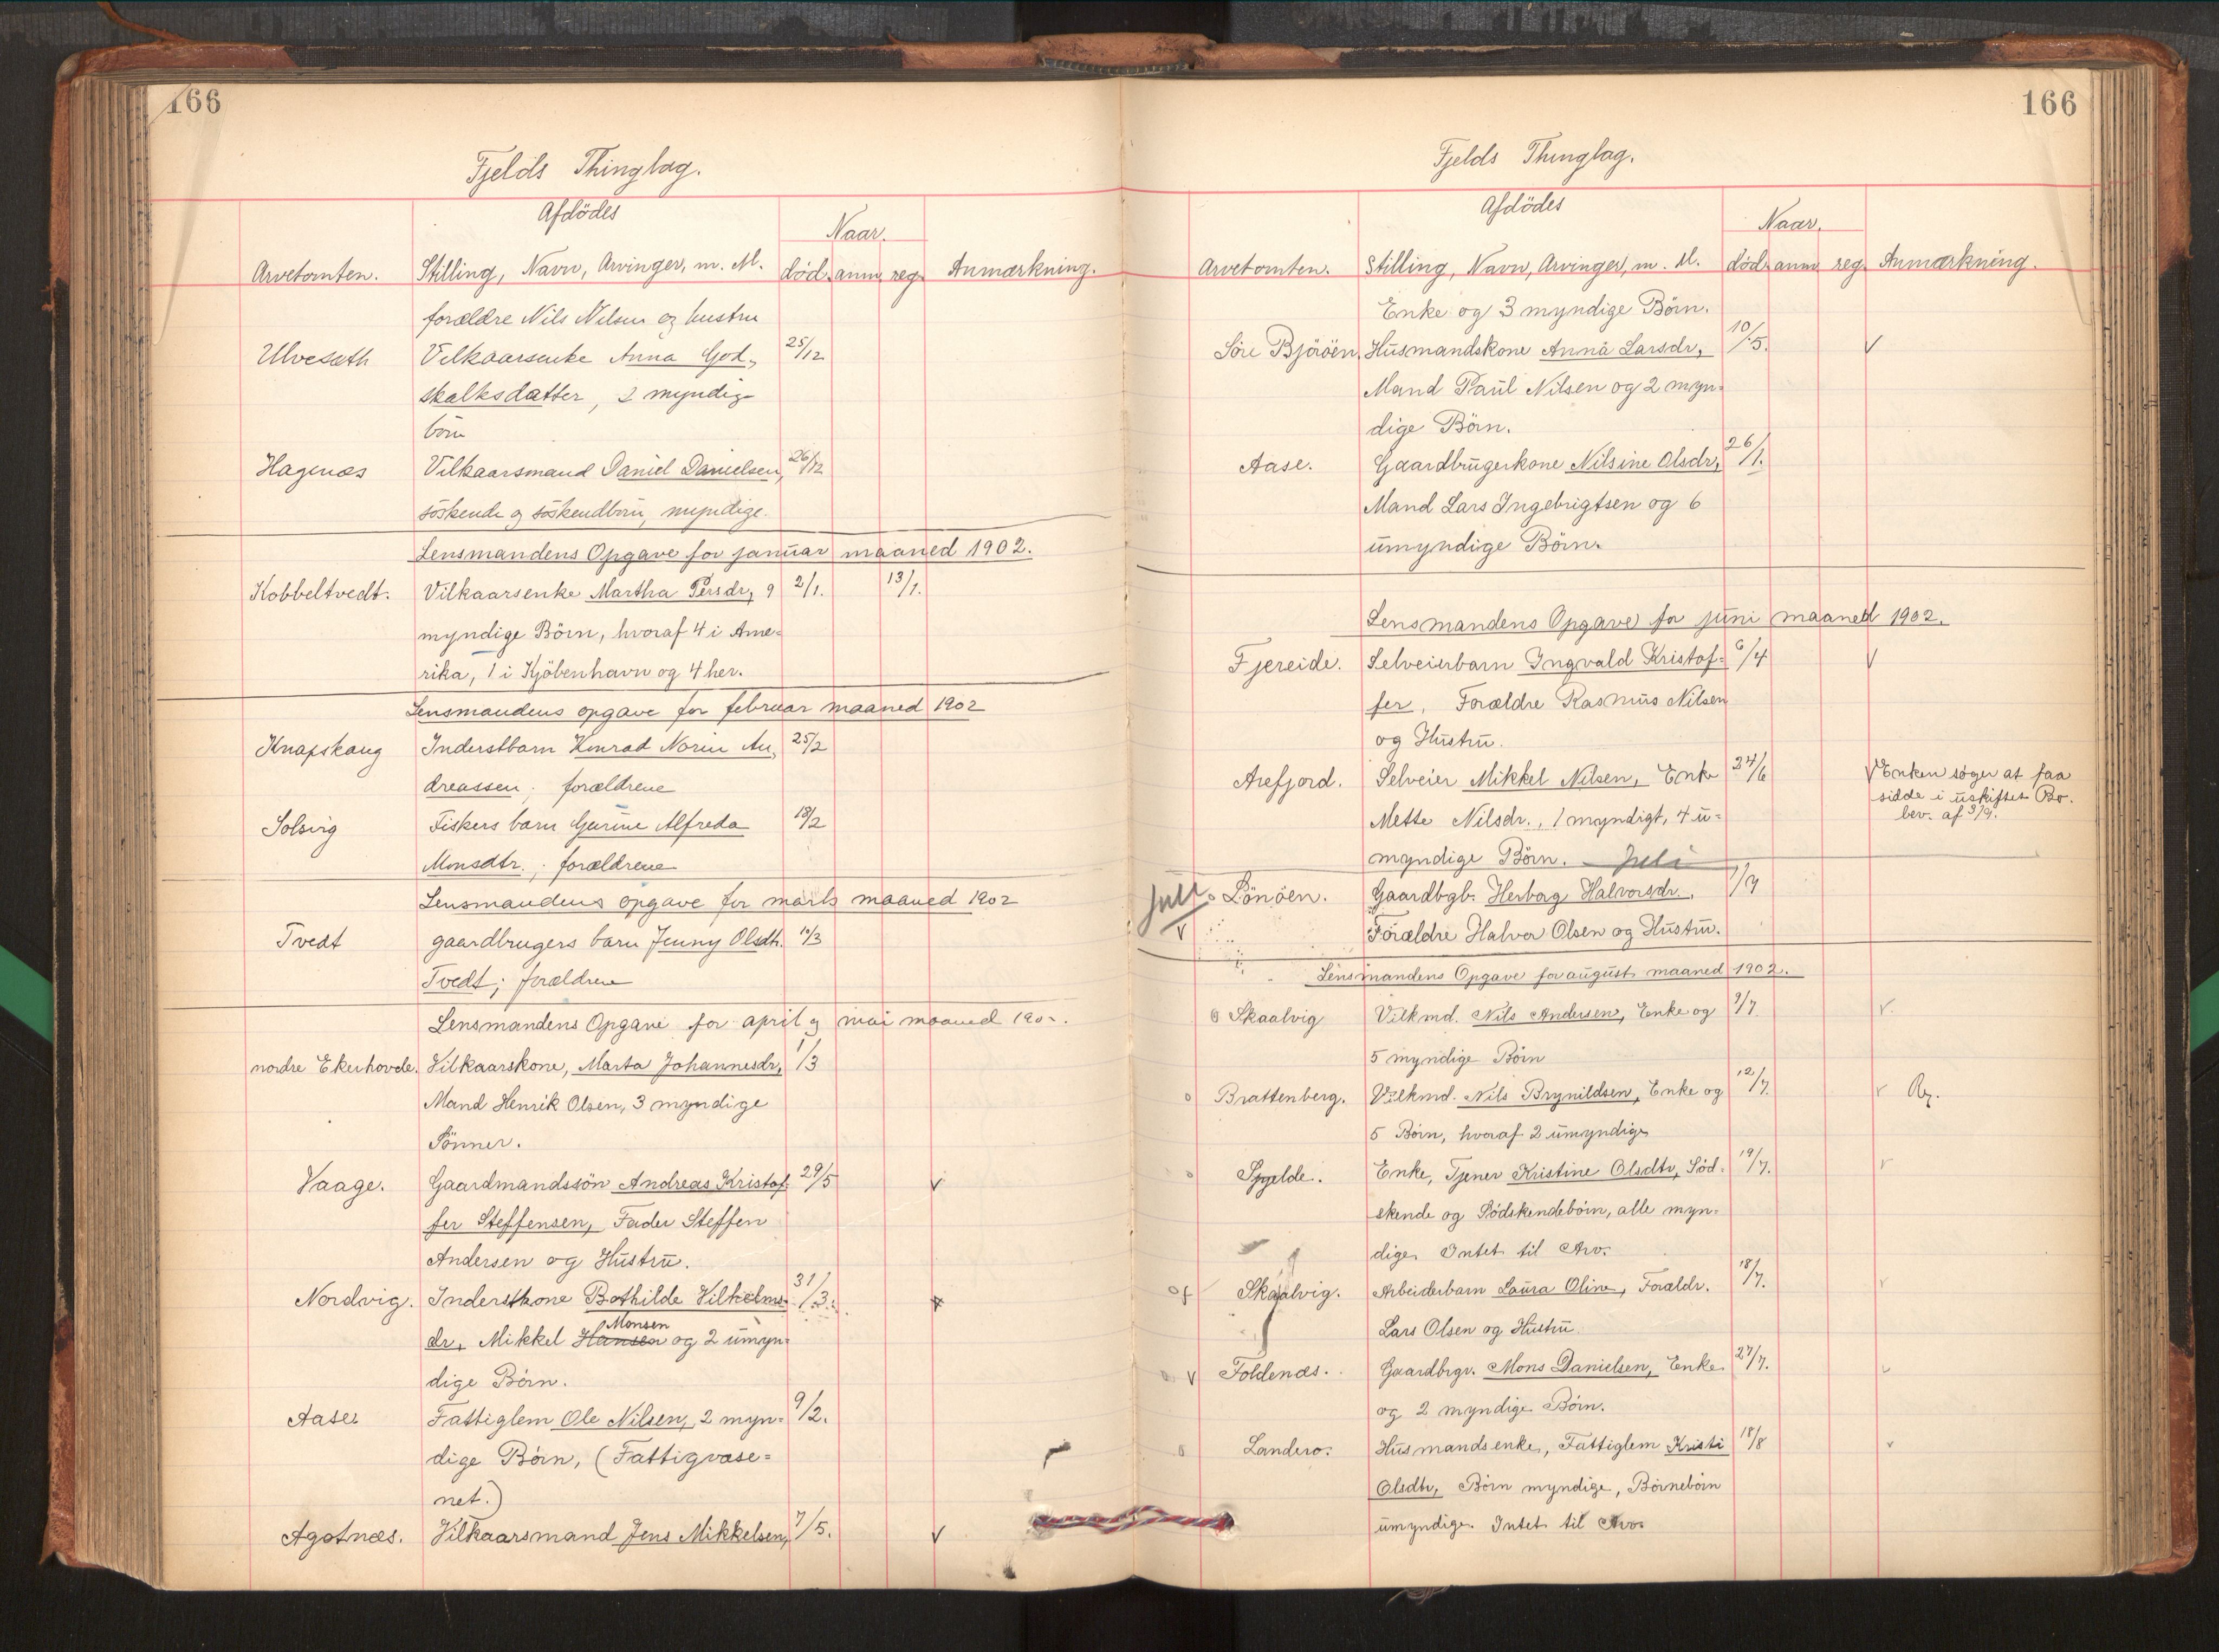 166
Fjelds Thinglag.
Afdödes
Naar.
Arvetomten. Stilling, Navn, Arvinger, m. M. död. anm. reg. Anmærkning.
forældre Nils Nilsen og hustru
Ulvesæth Vilkaarsenke Anna God- 25/12
skalksdatter, 2 myndige
börn
Hagenæs Vilkaarsmand Daniel Danielsen, 26/12
söskende og söskendbörn, myndige.
Lensmandens Opgave for januar maaned 1902.
Kobbeltvedt. Vilkaarsenke Martha Persdr, 9 2/1. 13/1.
myndige Börn, hvoraf 4 i Ame-
rika, 1 i Kjöbenhavn og 4 her.
Lensmandens opgave for februar maaned 1902
Knapskaug Inderstbarn Konrad Norin An- 25/2
dreassen; forældrene
Solsvig Fiskers barn Gurine Alfreda 18/2
Monsdtr.; forældrene
Lensmandens opgave for marts maaned 1902
Tvedt gaardbrugers barn Jenny Olsdtr. 10/3
Tvedt; forældrene
Lensmandens Opgave for april og mai maaned 1902.
nordre Ekerhovde. Vilkaarskone, Marta Johannesdr, 1/3
Mand Henrik Olsen, 3 myndige
Sönner.
Vaage. Gaardmandssön Andreas Kristof- 29/5 v
fer Steffensen, Fader Steffen
Andersen og Hustru.
Nordvig. Inderstkone Bothilde Vilhelms- 31/3. v
Monsen
dr, Mikkel Hansen og 2 umyn-
dige Börn.
Aase. Fattiglem Ole Nilsen, 2 myn- 9/2.
dige Börn, (Fattigvæse-
net.)
Agotnæs. Vilkaarsmand Jens Mikkelsen, 7/5. v
166
Fjelds Thinglag.
Afdödes
Naar.
Arvetomten. Stilling, Navn, Arvinger, m. M. död. anm. reg. Anmærkning.
Enke og 3 myndige Börn.
Söre Björöen. Husmandskone Anna Larsdr, 10/5. v
Mand Paul Nilsen og 2 myn-
dige Börn.
Aase. Gaardbrugerkone Nilsine Olsdr, 26/1.
Mand Lars Ingebrigtsen og 6
umyndige Börn.
Lensmandens Opgave for juni maaned 1902.
Fjereide. Selveierbarn Ingvald Kristof- 6/4 v
fer, Forældre Rasmus Nilsen
og Hustru.
Arefjord. Selveier Mikkel Nilsen, Enke 24/6 v Enken söger at faa
sidde i uskiftet Bo.
bev. af 3/9.
Mette Nilsdr., 1 myndigt, 4 u-
myndige Börn. Juli
Juli. v Lönöen. Gaardbgb. Herborg Halvorsdr. 1/7
Forældre Halvor Olsen og Hustru.
Lensmandens Opgave for august maaned 1902.
o Skaalvig Vilkmd. Nils Andersen, Enke og 9/7 v.
5 myndige Börn
o Brattenberg. Vilkmd. Nils Brynildsen, Enke og 12/7. v
5 Börn, hvoraf 2 umyndige
o Spjelde. Enke, Tjener Kristine Olsdtr, Söd- 19/7. v
skende og Södskendebörn, alle myn-
dige. Intet til Arv.
of Skaalvig. Arbeiderbarn Laura Oline, Forældr. 18/7. v
Lars Olsen og Hustru
o v Foldenæs. Gaardbrgr. Mons Danielsen, Enke 27/7. v
og 2 myndige Börn.
o Landero. Husmandsenke, Fattiglem Kristi 18/8 v
Olsdtr, Börn myndige, Börnebörn
umyndige. Intet til Arv.